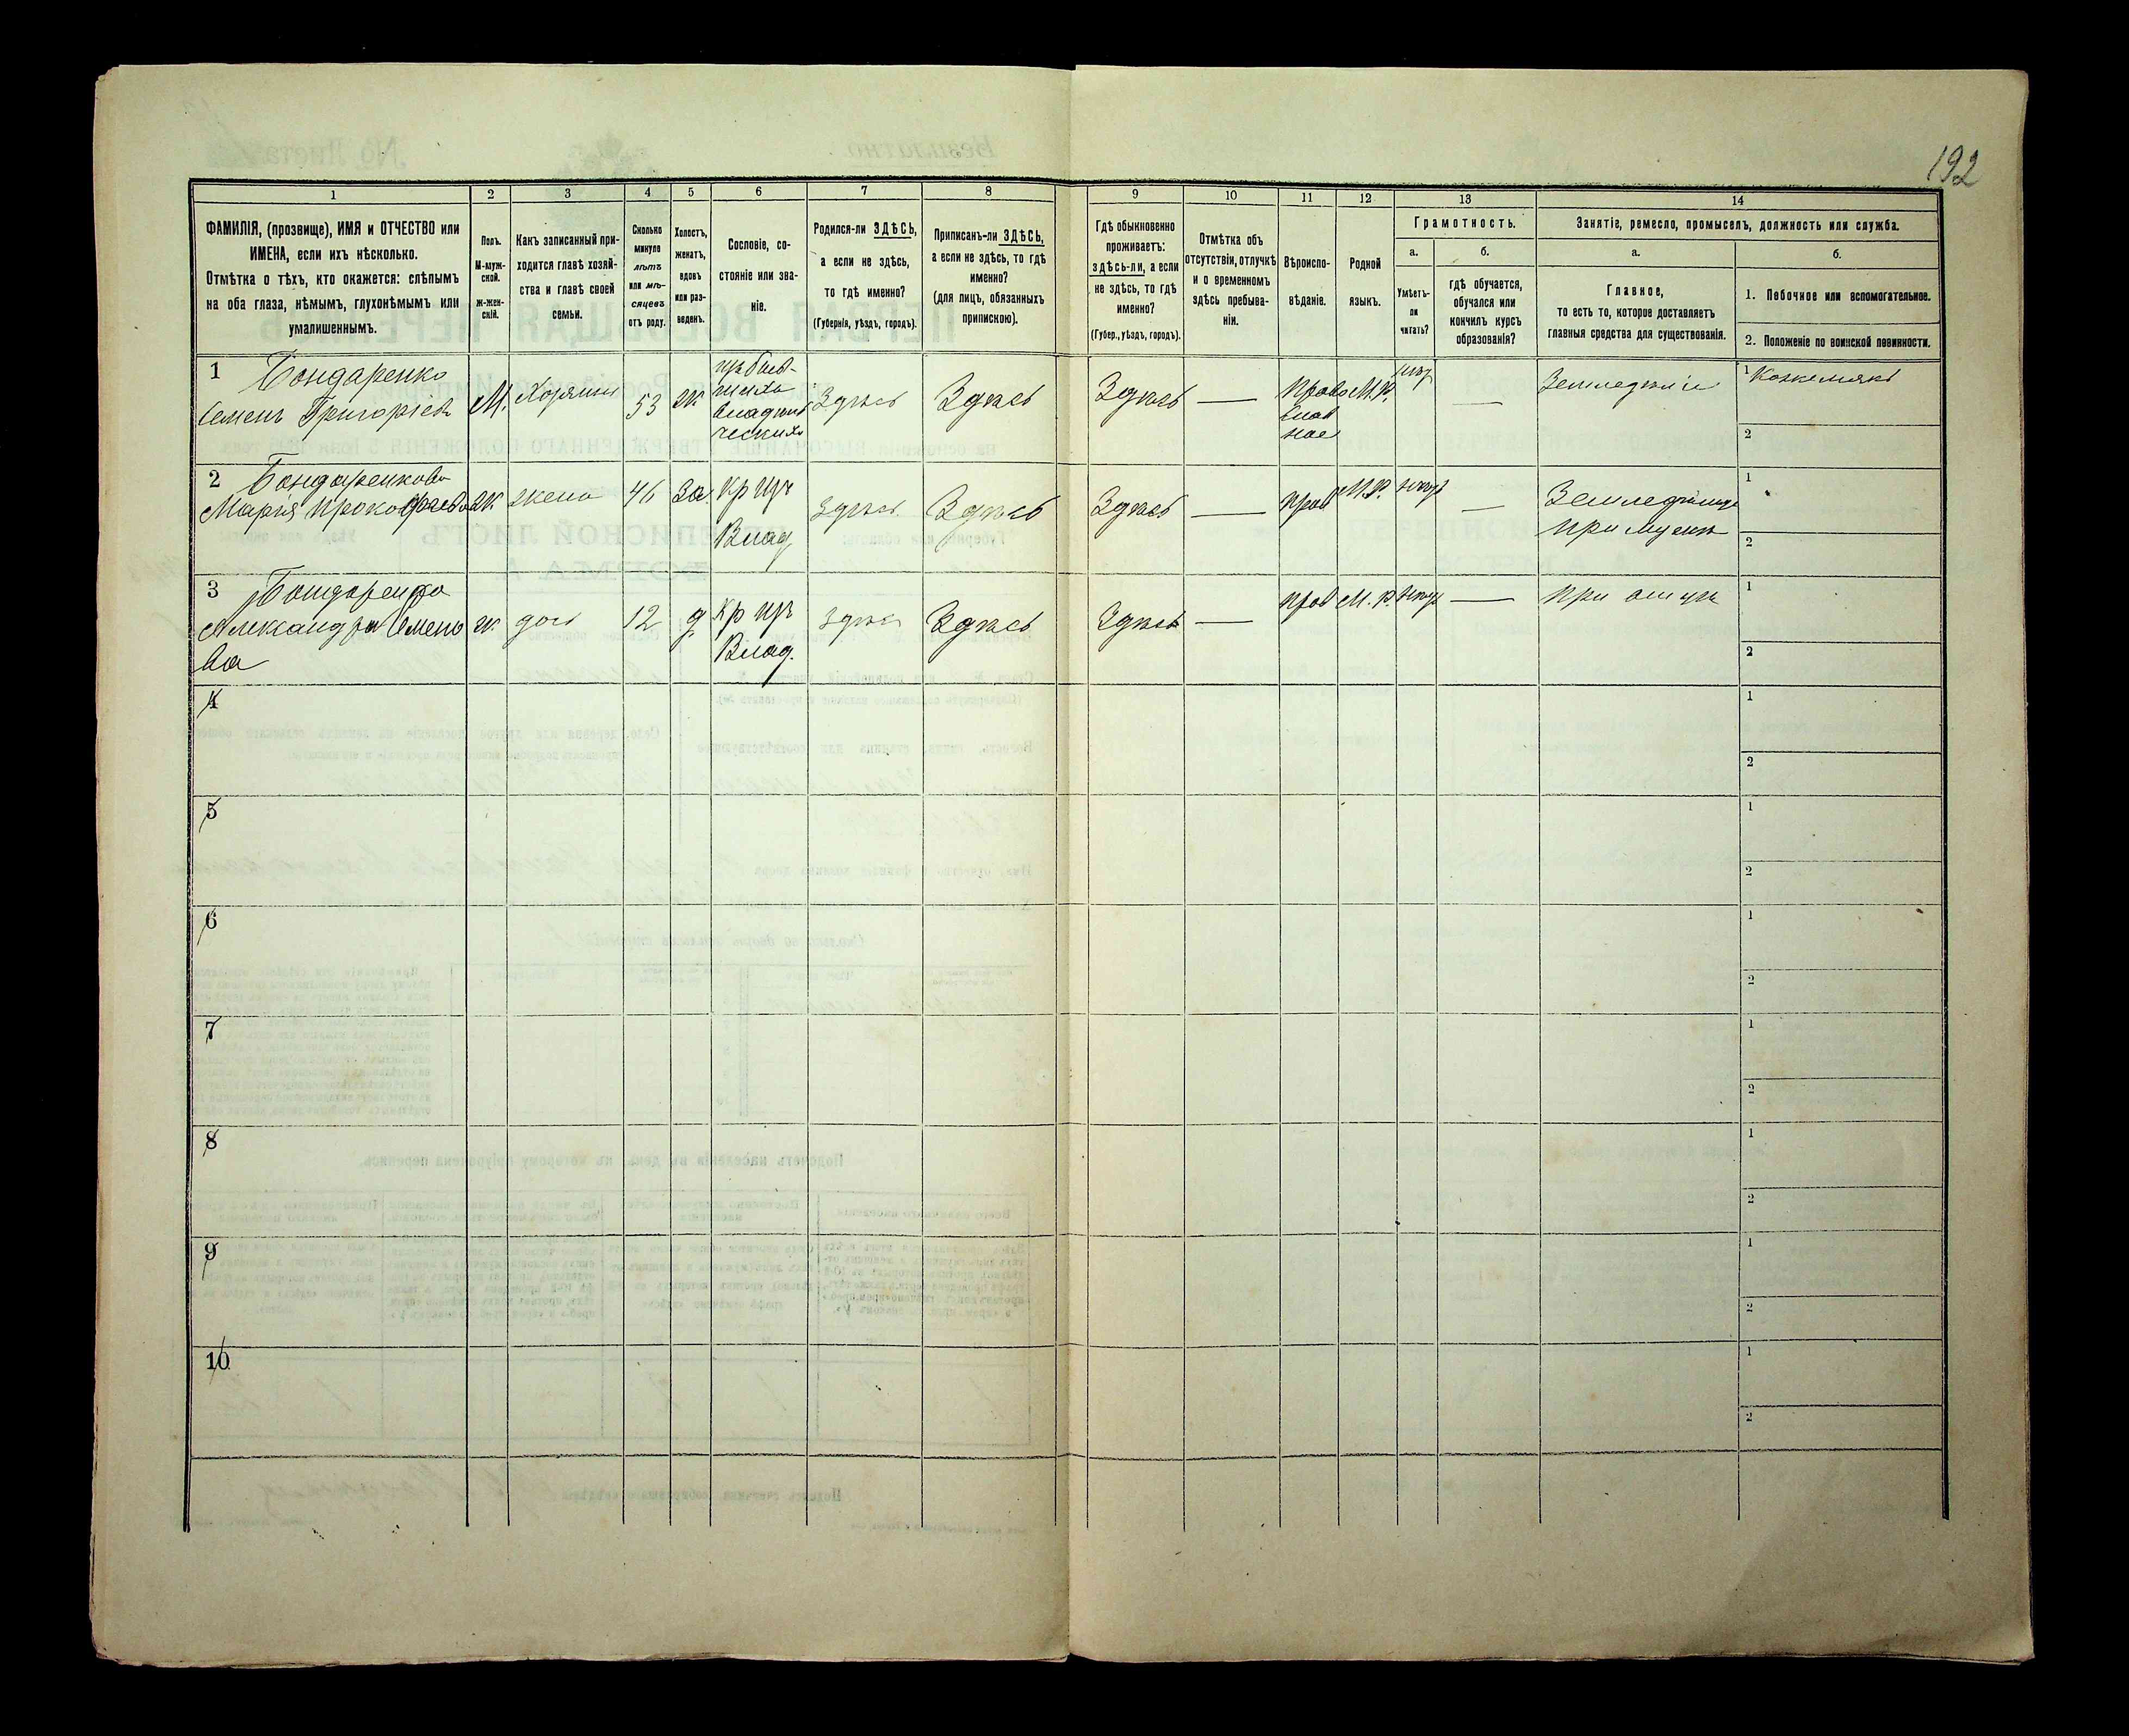 192
1
2
3
4
5
6
7
8
9
10
11
12
13
14
ФАМИЛІЯ, (прозвище), ИМЯ и ОТЧЕСТВО или
ИМЕНА, если ихъ нѣсколько.
Отмѣтка о тѣхъ, кто окажется: слѣпымъ
на оба глаза, нѣмымъ, глухонѣмымъ или
умалишеннымъ.
Полъ.
М-муж-
ской.
ж-жен-
скій.
Какъ записанный при-
ходится главѣ хозяй-
ства и главѣ своей
семьи.
Сколько
минуло
лѣтъ
или мѣ-
сяцевъ
отъ роду.
Холостъ,
женатъ,
вдовъ
или раз-
веденъ.
Сословіе, со-
стояніе или зва-
ніе.
Родился-ли ЗДѢСЬ,
а если не здѣсь,
то гдѣ именно?
(Губернія, уѣздъ, городъ).
Приписанъ-ли ЗДѢСЬ,
а если не здѣсь, то гдѣ
именно?
(для лицъ, обязанныхъ
припискою).
Гдѣ обыкновенно
проживаетъ:
здѣсь-ли, а если
не здѣсь, то гдѣ
именно?
(Губер., уѣздъ, городъ).
Отмѣтка объ
отсутствіи, отлучкѣ
и о временномъ
здѣсь пребыва-
ніи.
Вѣроиспо-
вѣданіе.
Родной
языкъ.
Грамотность.
а.
Умѣетъ-
ли
читать?
б.
гдѣ обучается,
обучался или
кончилъ курсъ
образованія?
Занятіе, ремесло, промыселъ, должность или служба.
а.
Главное,
то есть то, которое доставляетъ
главныя средства для существованія.
б.
1. Побочное или вспомогательное.
2. Положеніе по воинской повинности.
1 Бондаренко
Семенъ Григоріев
М.
Хозяинъ
53
ж
Здѣсь
Здѣсь
Здѣсь
—
Право
слав
ное
М.Р.
—
Земледѣліе
1
2
2 Бондаренкова
Марія Прокофьева
ж
жена
46
За
Кр изъ
Влад
Здѣсь
Здѣсь
Здѣсь
—
Прав
М.Р.
—
при мужѣ
1
2
3 Бондаренко
Александра Семено
ва
ж
дочь
12
д
Кр изъ
Влад.
Здѣсь
Здѣсь
Здѣсь
—
Прав
М.Р.
—
При отцѣ
1
2
4
1
2
5
1
2
6
1
2
7
1
2
8
1
2
9
1
2
10
1
2